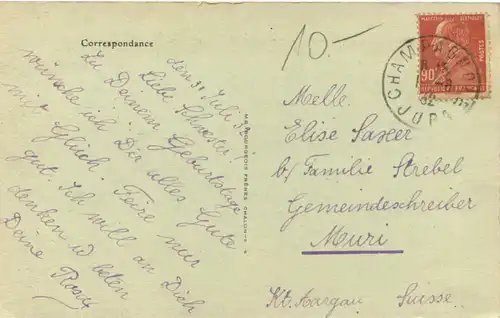 Correspondance
10.-
den 31. Juli 32.
Liebe Schwester!
Zu Deinem Geburtstage
wünsche ich Dir alles Gute
mit Glück. Feire nur
gut. Ich will an Dich
denken u beten
Deine Rosa
Melle.
Elise Saxer
b/ Familie Strebel
Gemeindeschreiber
Muri
Kt. Aargau Suisse
90
POSTES
CHAMPAGNOLE
JURA